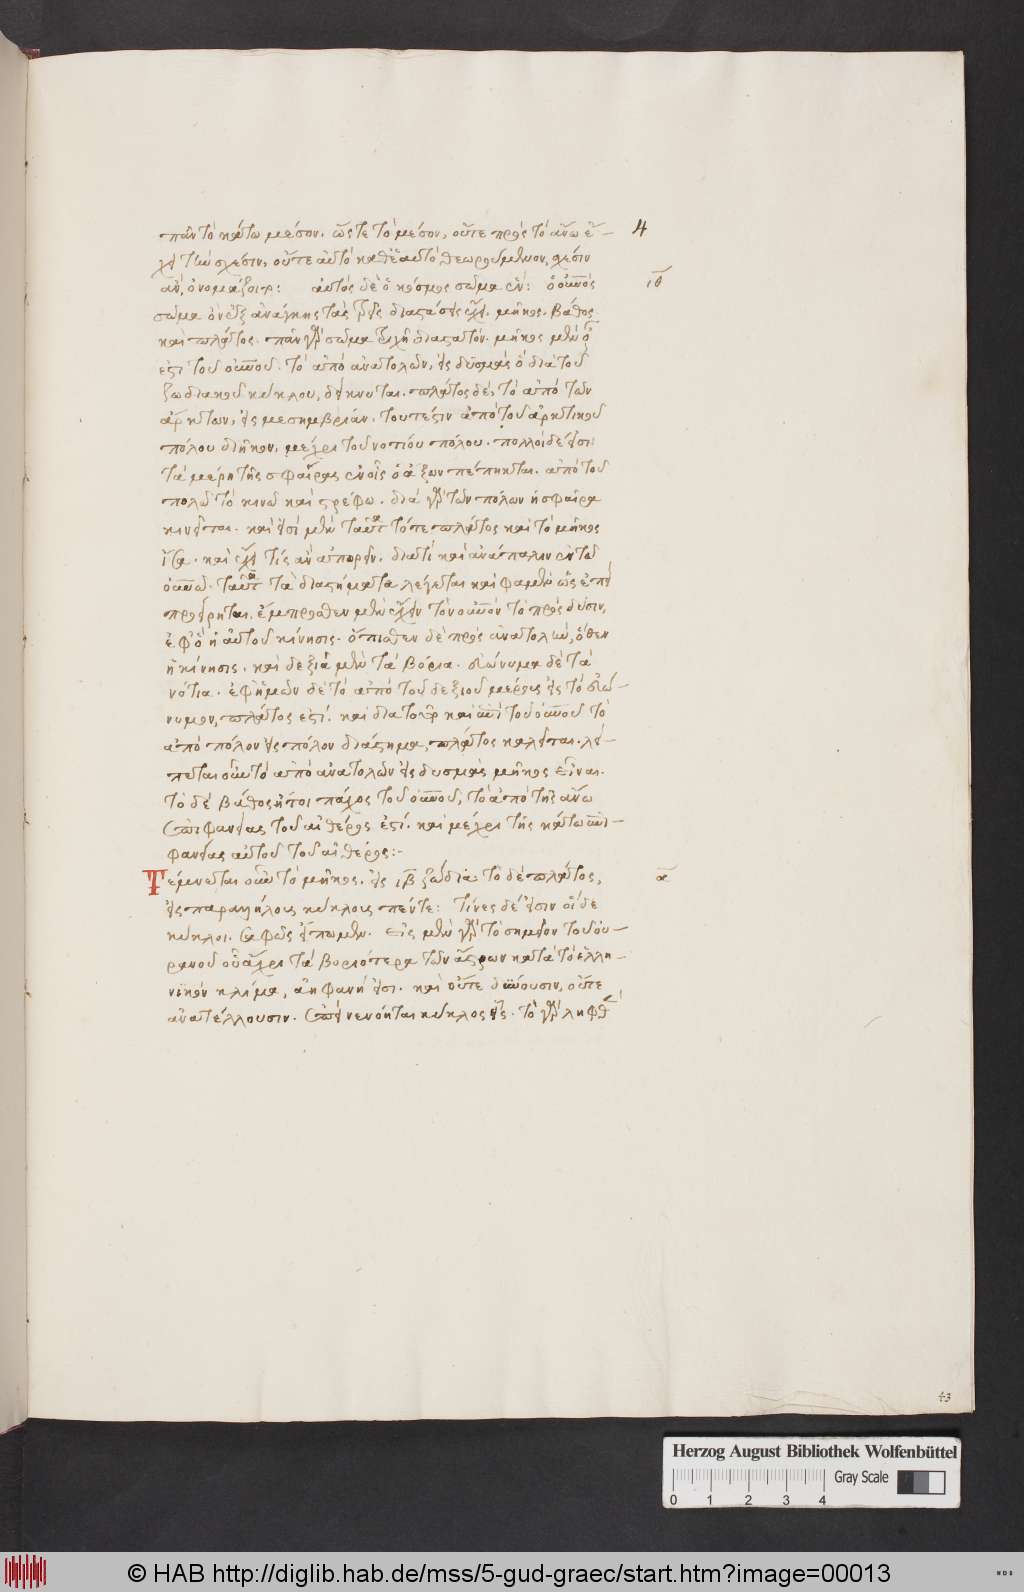 πᾶν τὸ κάτω μέσον. ὥστε τὸ μέσον, οὔτε πρὸς τὸ ἄνω ἔ-
χει τινὰ σχέσιν, οὔτε αὐτὸ καθ' ἑαυτὸ θεωρούμενον, σχέσιν
ἂν ὀνομάζοιτο: αὐτὸς δὲ ὁ κόσμος σῶμα ὤν: ὁ οὐρανὸς
σῶμα ὢν ἐξ ἀνάγκης τὰς τρεῖς διαστάσεις ἔχει. μῆκος. βάθος.
καὶ πλάτος. πᾶν γὰρ σῶμα τριχῇ διαστατόν. μῆκος μὲν οὖν
ἐστὶ τοῦ οὐρανοῦ. τὸ ἀπὸ ἀνατολῶν, εἰς δυσμάς ὃ διὰ τοῦ
ζωδιακοῦ κύκλου, δείκνυται. πλάτος δὲ, τὸ ἀπὸ τῶν
ἄρκτων, εἰς μεσημβρίαν. τουτέστιν ἀπὸ τοῦ ἀρκτικοῦ
πόλου διῆκον, μέχρι τοῦ νοτίου πόλου. πόλοι δέ εἰσι
τὰ μέρη τῆς σφαίρας ἐν οἷς ὁ ἄξων πέπηκται. ἀπὸ τοῦ
πολῶ τὸ κινῶ καὶ στρέφω. διὰ γὰρ τῶν πόλων ἡ σφαῖρα
κινεῖται. καὶ εἰσὶ μὲν ταῦτα τό τε πλάτος καὶ τὸ μῆκος
ἴσα. καὶ ἔχει τίς ἂν ἀπορεῖν. διατί καὶ ἀνάπαλιν ἐν τῷ
οὐρανῷ. ταῦτα τὰ διαστήματα λέγεται καὶ φαμὲν ὡς ἐπεὶ
προείρηται. ἔμπροσθεν μὲν ἔχειν τὸν οὐρανὸν τὸ πρὸς δύσιν,
ἐφ' ὃ ἡ αὐτοῦ κίνησις. ὄπισθεν δὲ πρὸς ἀνατολὴν, ὅθεν
ἡ κίνησις. καὶ δεξιὰ μὲν τὰ βόρια. εὐώνυμα δὲ τὰ
νότια. ἐφ' ἡμῶν δὲ τὸ ἀπὸ τοῦ δεξιοῦ μέρους εἰς τὸ εὐώ-
νυμον, πλάτος ἐστί. καὶ διὰ τοῦτο καὶ ἐπὶ τοῦ οὐρανοῦ τὸ
ἀπὸ πόλου εἰς πόλον διάστημα, πλάτος καλεῖται. λεί-
πεται οὖν τὸ ἀπὸ ἀνατολῶν εἰς δυσμὰς μῆκος εἶναι.
τὸ δὲ βάθος ἤτοι πάχος τοῦ οὐρανοῦ, τὸ ἀπὸ τῆς ἄνω
ἐπιφανείας τοῦ αἰθέρος ἐστί. καὶ μέχρι τῆς κάτω ἐπι-
φανείας αὐτοῦ τοῦ αἰθέρος:-
Τέμνεται οὖν τὸ μῆκος. εἰς ιβ ζώδια τὸ δὲ πλάτος,
εἰς παραλλήλους κύκλους πέντε: τίνες δέ εἰσιν οἵδε
κύκλοι. σαφῶς εἴπωμεν. εἰς μὲν γὰρ τὸ σημεῖον τοῦ οὐ-
ρανοῦ οὗ ἄχρι τὰ βοριότερα τῶν ἄστρων κατὰ τὸ ἑλλη-
νικὸν κλίμα, ἀειφανῆ εἰσι. καὶ οὔτε δύνουσιν, οὔτε
ἀνατέλλουσιν. ἐπεὶ νενόηται κύκλος εἷς. τὸ γὰρ ληφθὲ
4
ιδ
α
43
Herzog August Bibliothek Wolfenbüttel
Gray Scale
0 1 2 3 4
© HAB http://diglib.hab.de/mss/5-gud-graec/start.htm?image=00013